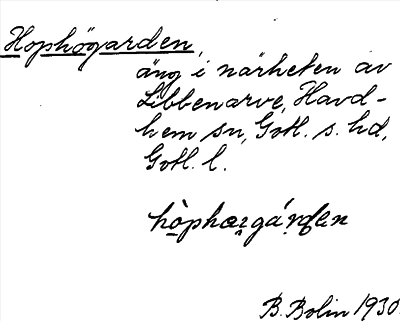 Hophögarden,
äng i närheten av
Libbenarve, Havd-
hem sn, Gotl. s. hd,
Gotl. l.
hòphœrgárden
B. Bolin 1930